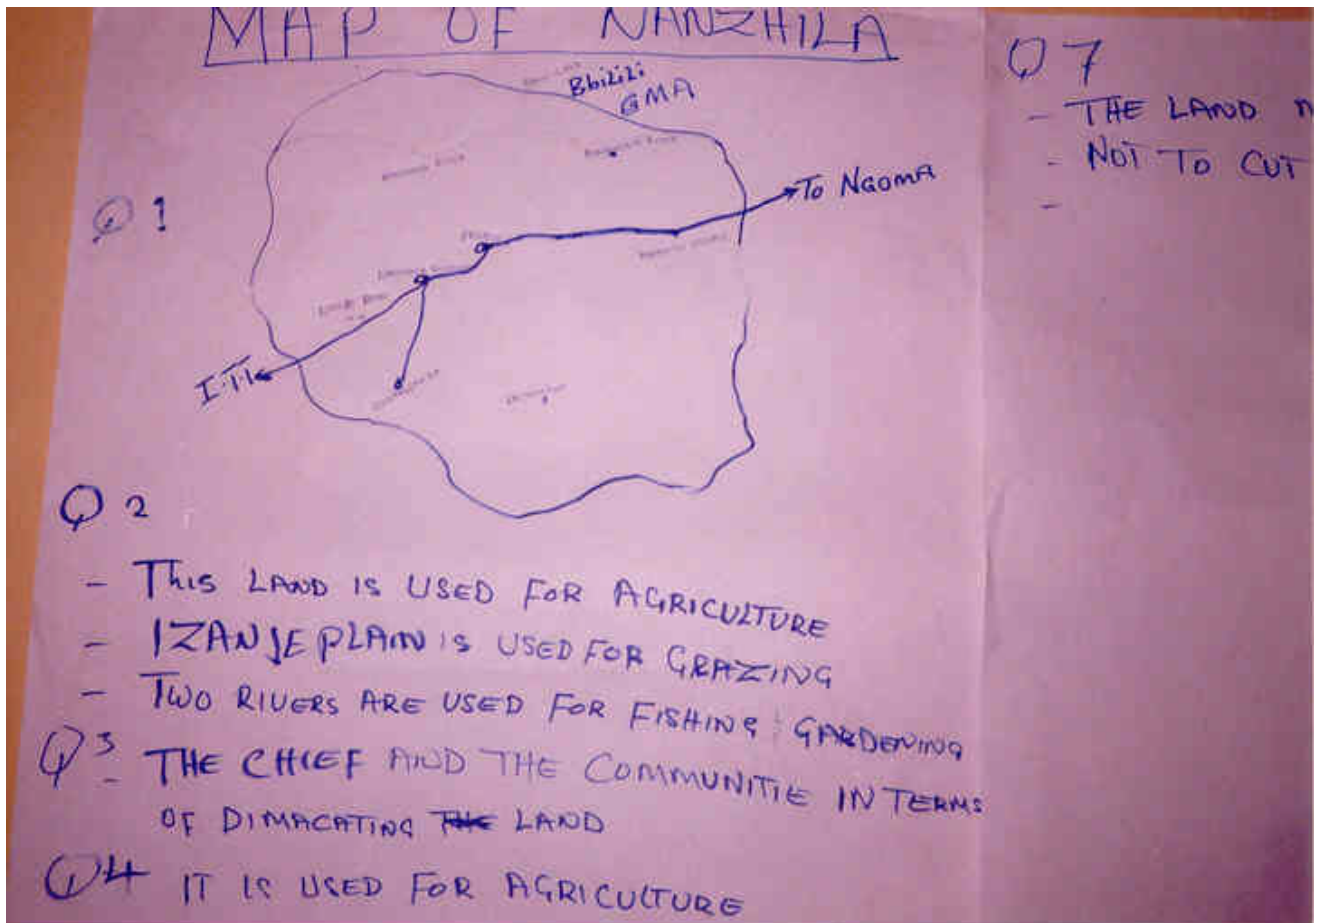 MAP OF NANZHILA
Bbilili
GMA
To NGOMA
Q 1
I.T.I
Q 2
- THIS LAND IS USED FOR AGRICULTURE
- IZANJE PLAIN IS USED FOR GRAZING
- TWO RIVERS ARE USED FOR FISHING : GARDENING
Q3
- THE CHIEF AND THE COMMUNITIE IN TERMS
OF DIMACATING THE LAND
Q4 IT IS USED FOR AGRICULTURE
Q 7
- THE LAND
- NOT TO CUT
-